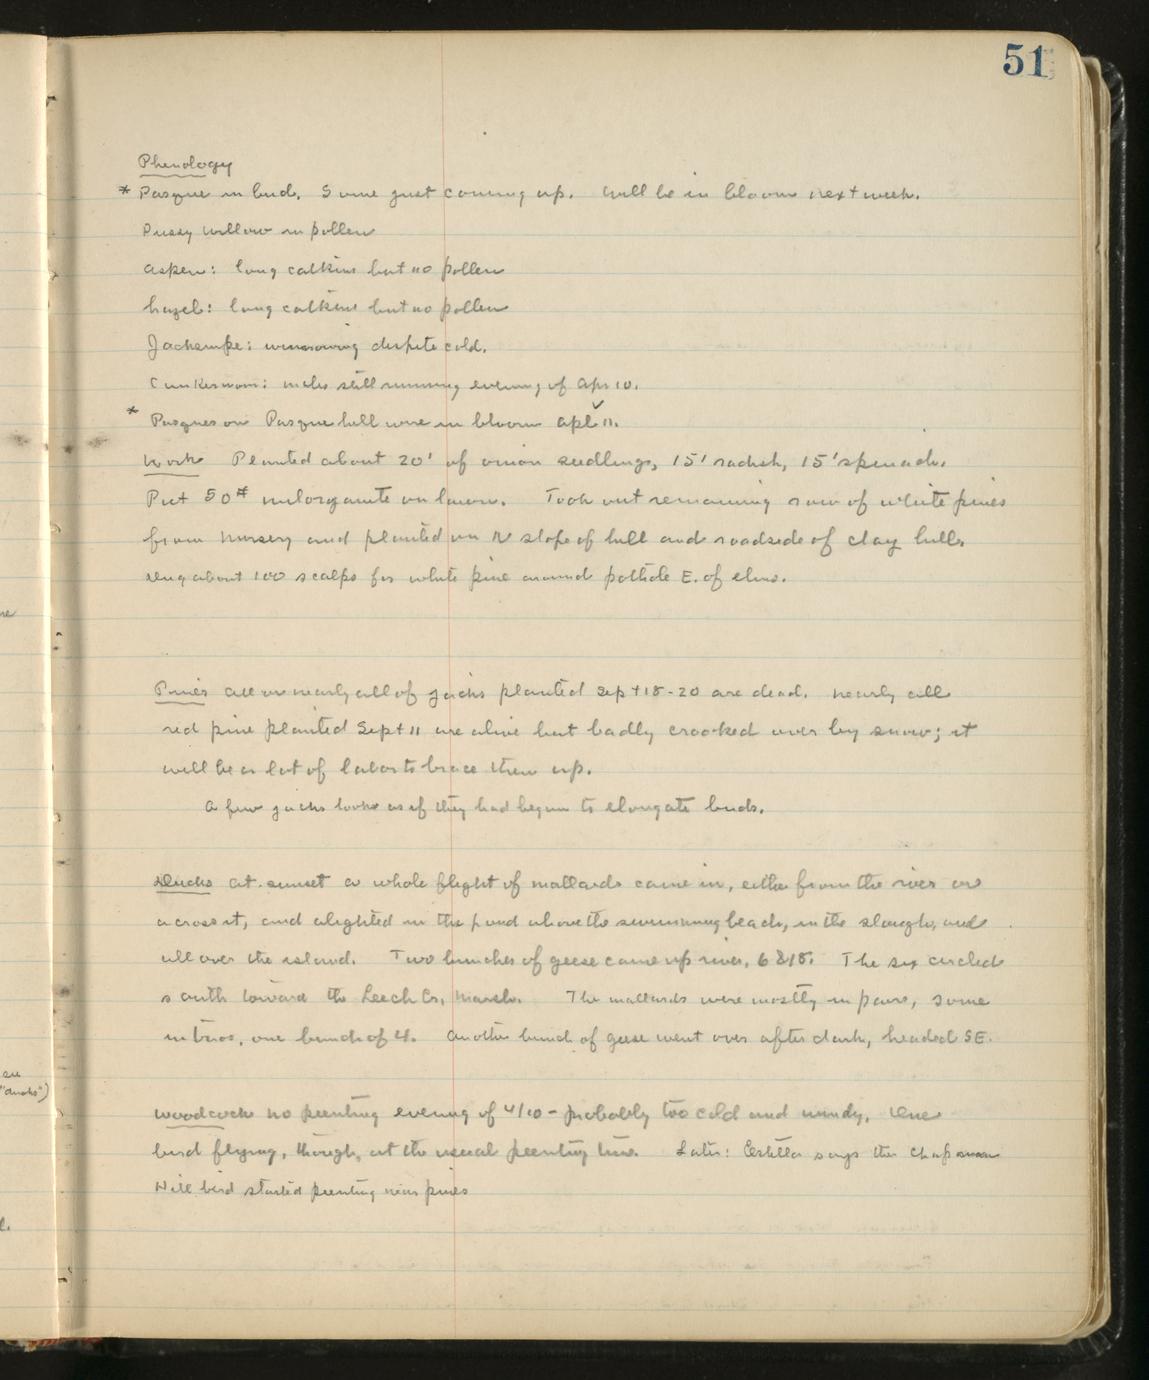 51
Phenology
* Pasque in bud. Some just coming up. Will be in bloom next week.
Pussy willow in pollen
Aspen: long catkins but no pollen
hazel: long catkins but no pollen
Jacksnipe: winnowing despite cold.
Cankerworm: males still running evening of Apr 10.
* Pasques on Pasque hill were in bloom Apl 11.
Work Planted about 20' of onion seedlings, 15' radish, 15' spinach.
Put 50# milorganite on lawn. Took out remaining row of white pines
from nursery and planted on N slope of hill and roadside of clay hill.
Dug about 100 scalps for white pine around pothole E. of elms.
Pines All or nearly all of jacks planted Sept 18-20 are dead. Nearly all
red pine planted Sept 11 are alive but badly crooked over by snow; it
will be a lot of labor to brace them up.
A few jacks look as if they had begun to elongate buds.
Ducks At sunset a whole flight of mallards came in, either from the river or
across it, and alighted in the pond above the swimming beach, in the slough, and
all over the island. Two bunches of geese came up river, 6 & 18. The six circled
south toward the Leech Cr. Marsh. The mallards were mostly in pairs, some
in trios, one bunch of 4. Another bunch of geese went over after dark, headed SE.
Woodcock no peenting evening of 4/10 - probably too cold and windy. One
bird flying, though, at the usual peenting time. Later: Estella says the Chapman
Hill bird started peenting near pines
are
"ducks")